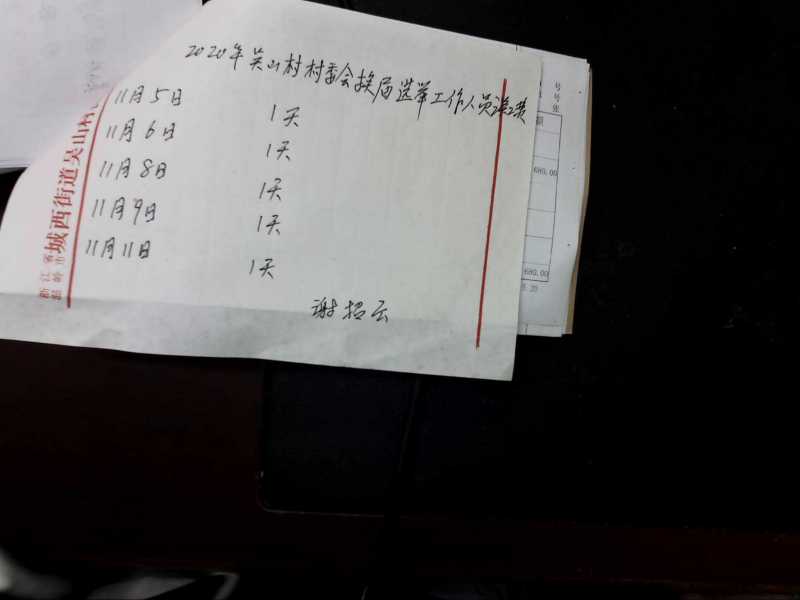 2020年吴山村村委会换届选举工作人员误工费
11月5日 1天
11月6日 1天
11月8日 1天
11月9日 1天
11月11日 1天
谢招云
浙江省
温岭市
城西街道吴山村
号
号
张
额
680.00
680.00